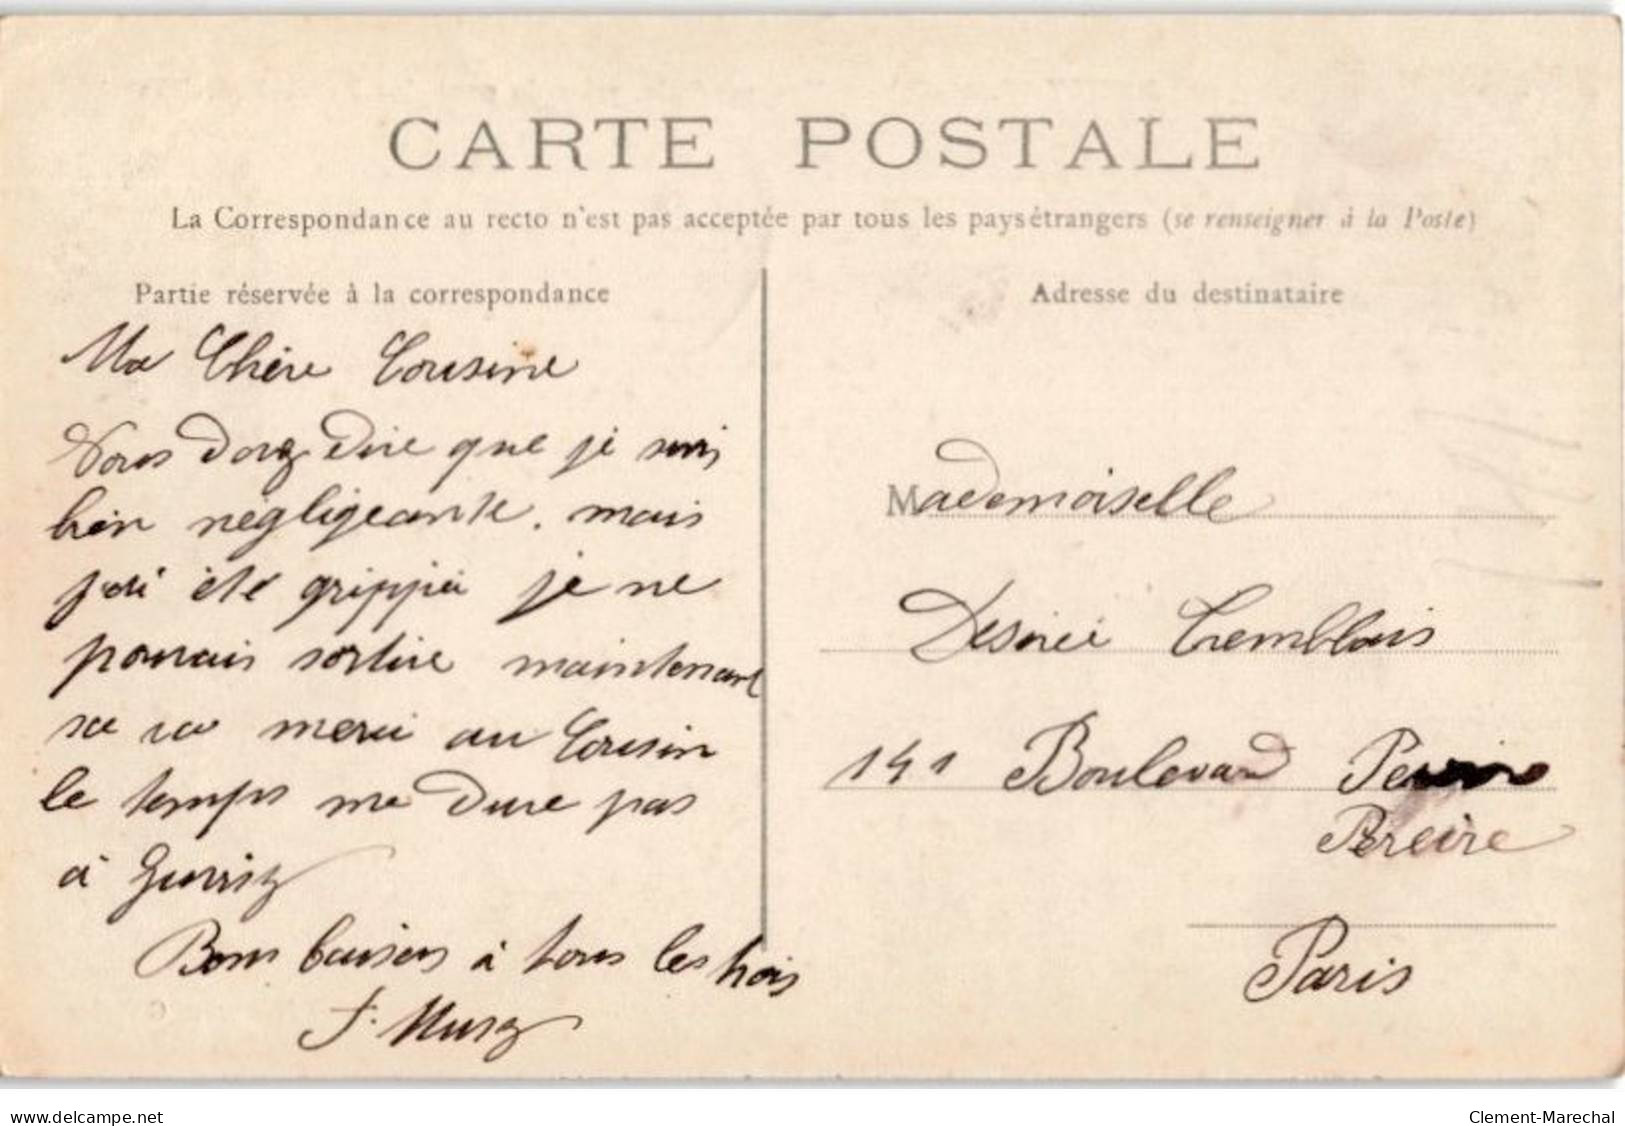 CARTE POSTALE
La Correspondance au recto n'est pas acceptée par tous les pays étrangers (se renseigner à la Poste)
Partie réservée à la correspondance
Ma Chère Cousine
Vous dire que je suis
bien négligeante. mais
j'ai été grippée je ne
pouvais sortire maintenant
sa va merci au Cousin
le temps me dure pas
à
Bons baisers à tous les trois
Adresse du destinataire
Mademoiselle
Desirée Tremblais
141 Boulevard
Pereire
Paris
www.delcampe.net
Clement-Marechal